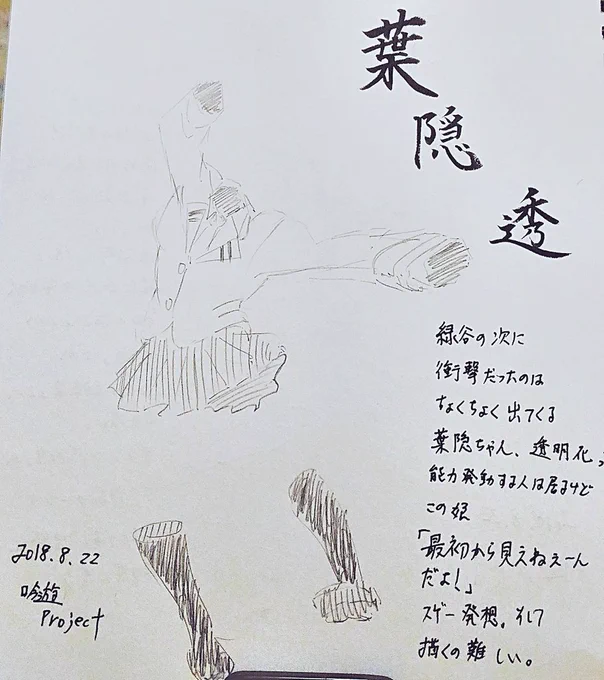 葉
隠
透
緑谷の次に
衝撃だったのは
ちょくちょく出てくる
葉隠ちゃん、透明化
能力発動する人は居るけど
この娘
「最初から見えねぇーん
だよ!」
スゲー発想。そして
描くの難しい。
2018.8.22
吟遊
Project